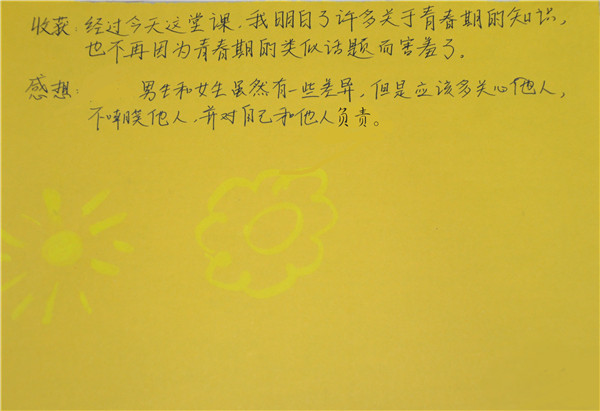 收获：经过今天这堂课，我明白了许多关于青春期的知识，
也不再因为青春期的类似话题而害羞了。
感想：男生和女生虽然有一些差异，但是应该多关心他人，
不嘲笑他人，并对自己和他人负责。